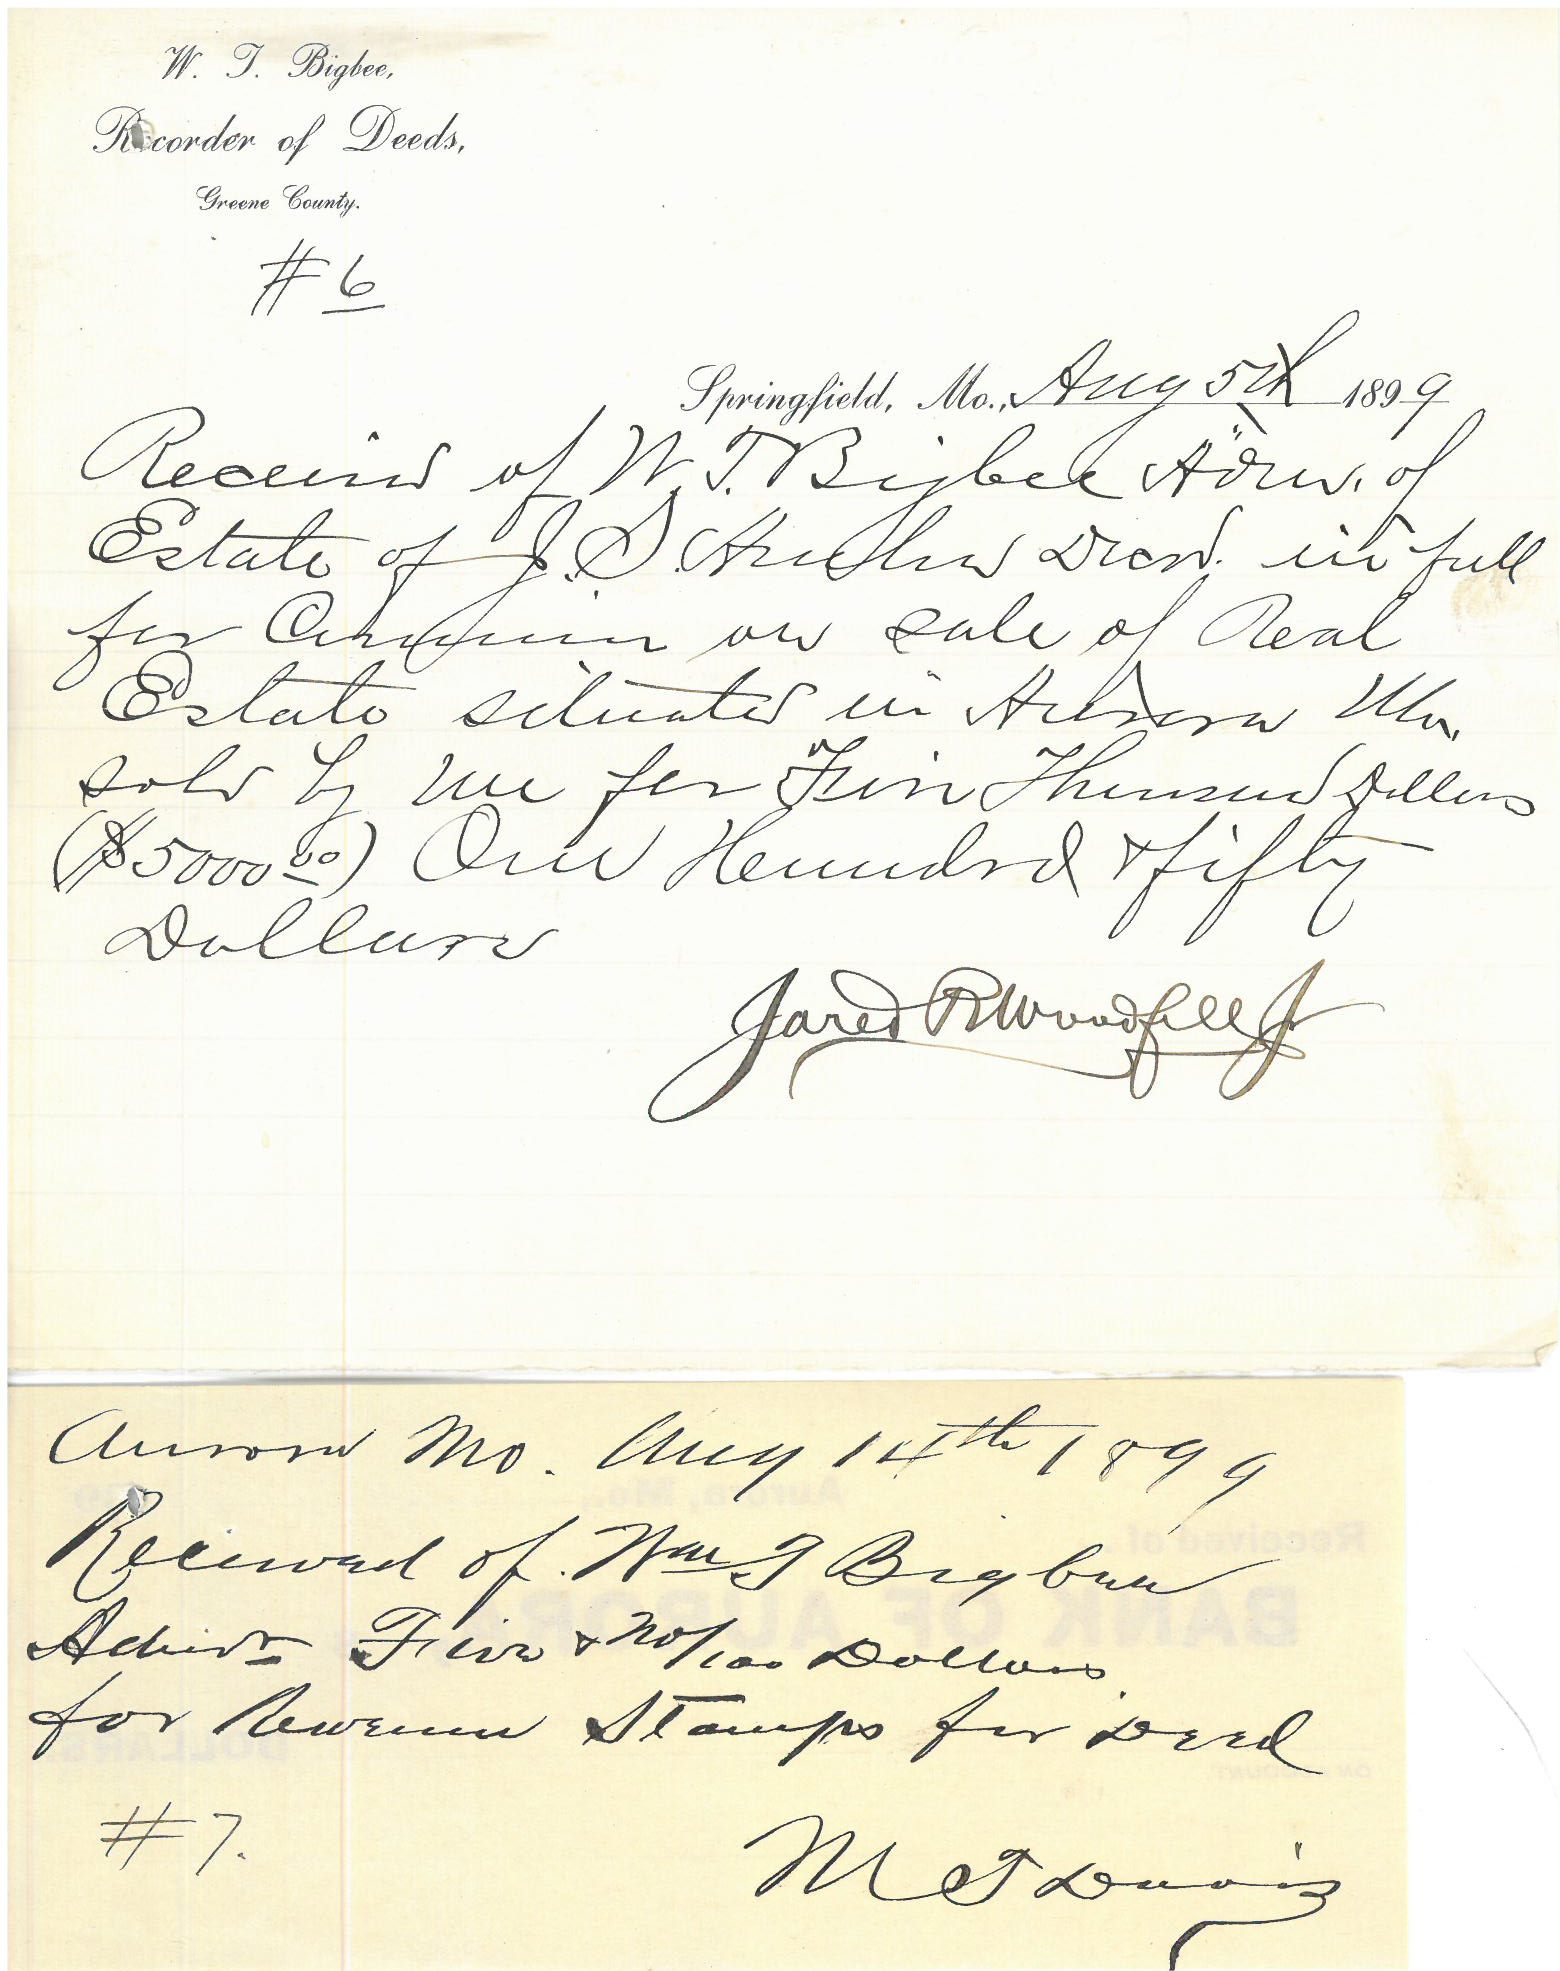 W. T. Bigbee,
Recorder of Deeds,
Greene County.
# 6
Springfield, Mo., Aug 5th 1899
Received of W. T. Bigbee Adm. of
Estate of J. S. Decd. in full
for on sale of Real
Estate situated in Aurora Mo.
sold by me for Five Thousand Dollars
($5000 00) One Hundred & fifty
Dollars
Jared R Woodfill Jr
Aurora Mo. Aug 14th 1899
Received of Wm T Bigbee
Admr Five & no/100 Dollars
for Revenue Stamps for Deed
# 7.
M T Davis
Aurora, Mo.,
Received of
BANK OF AURORA
DOLLARS
ON ACCOUNT